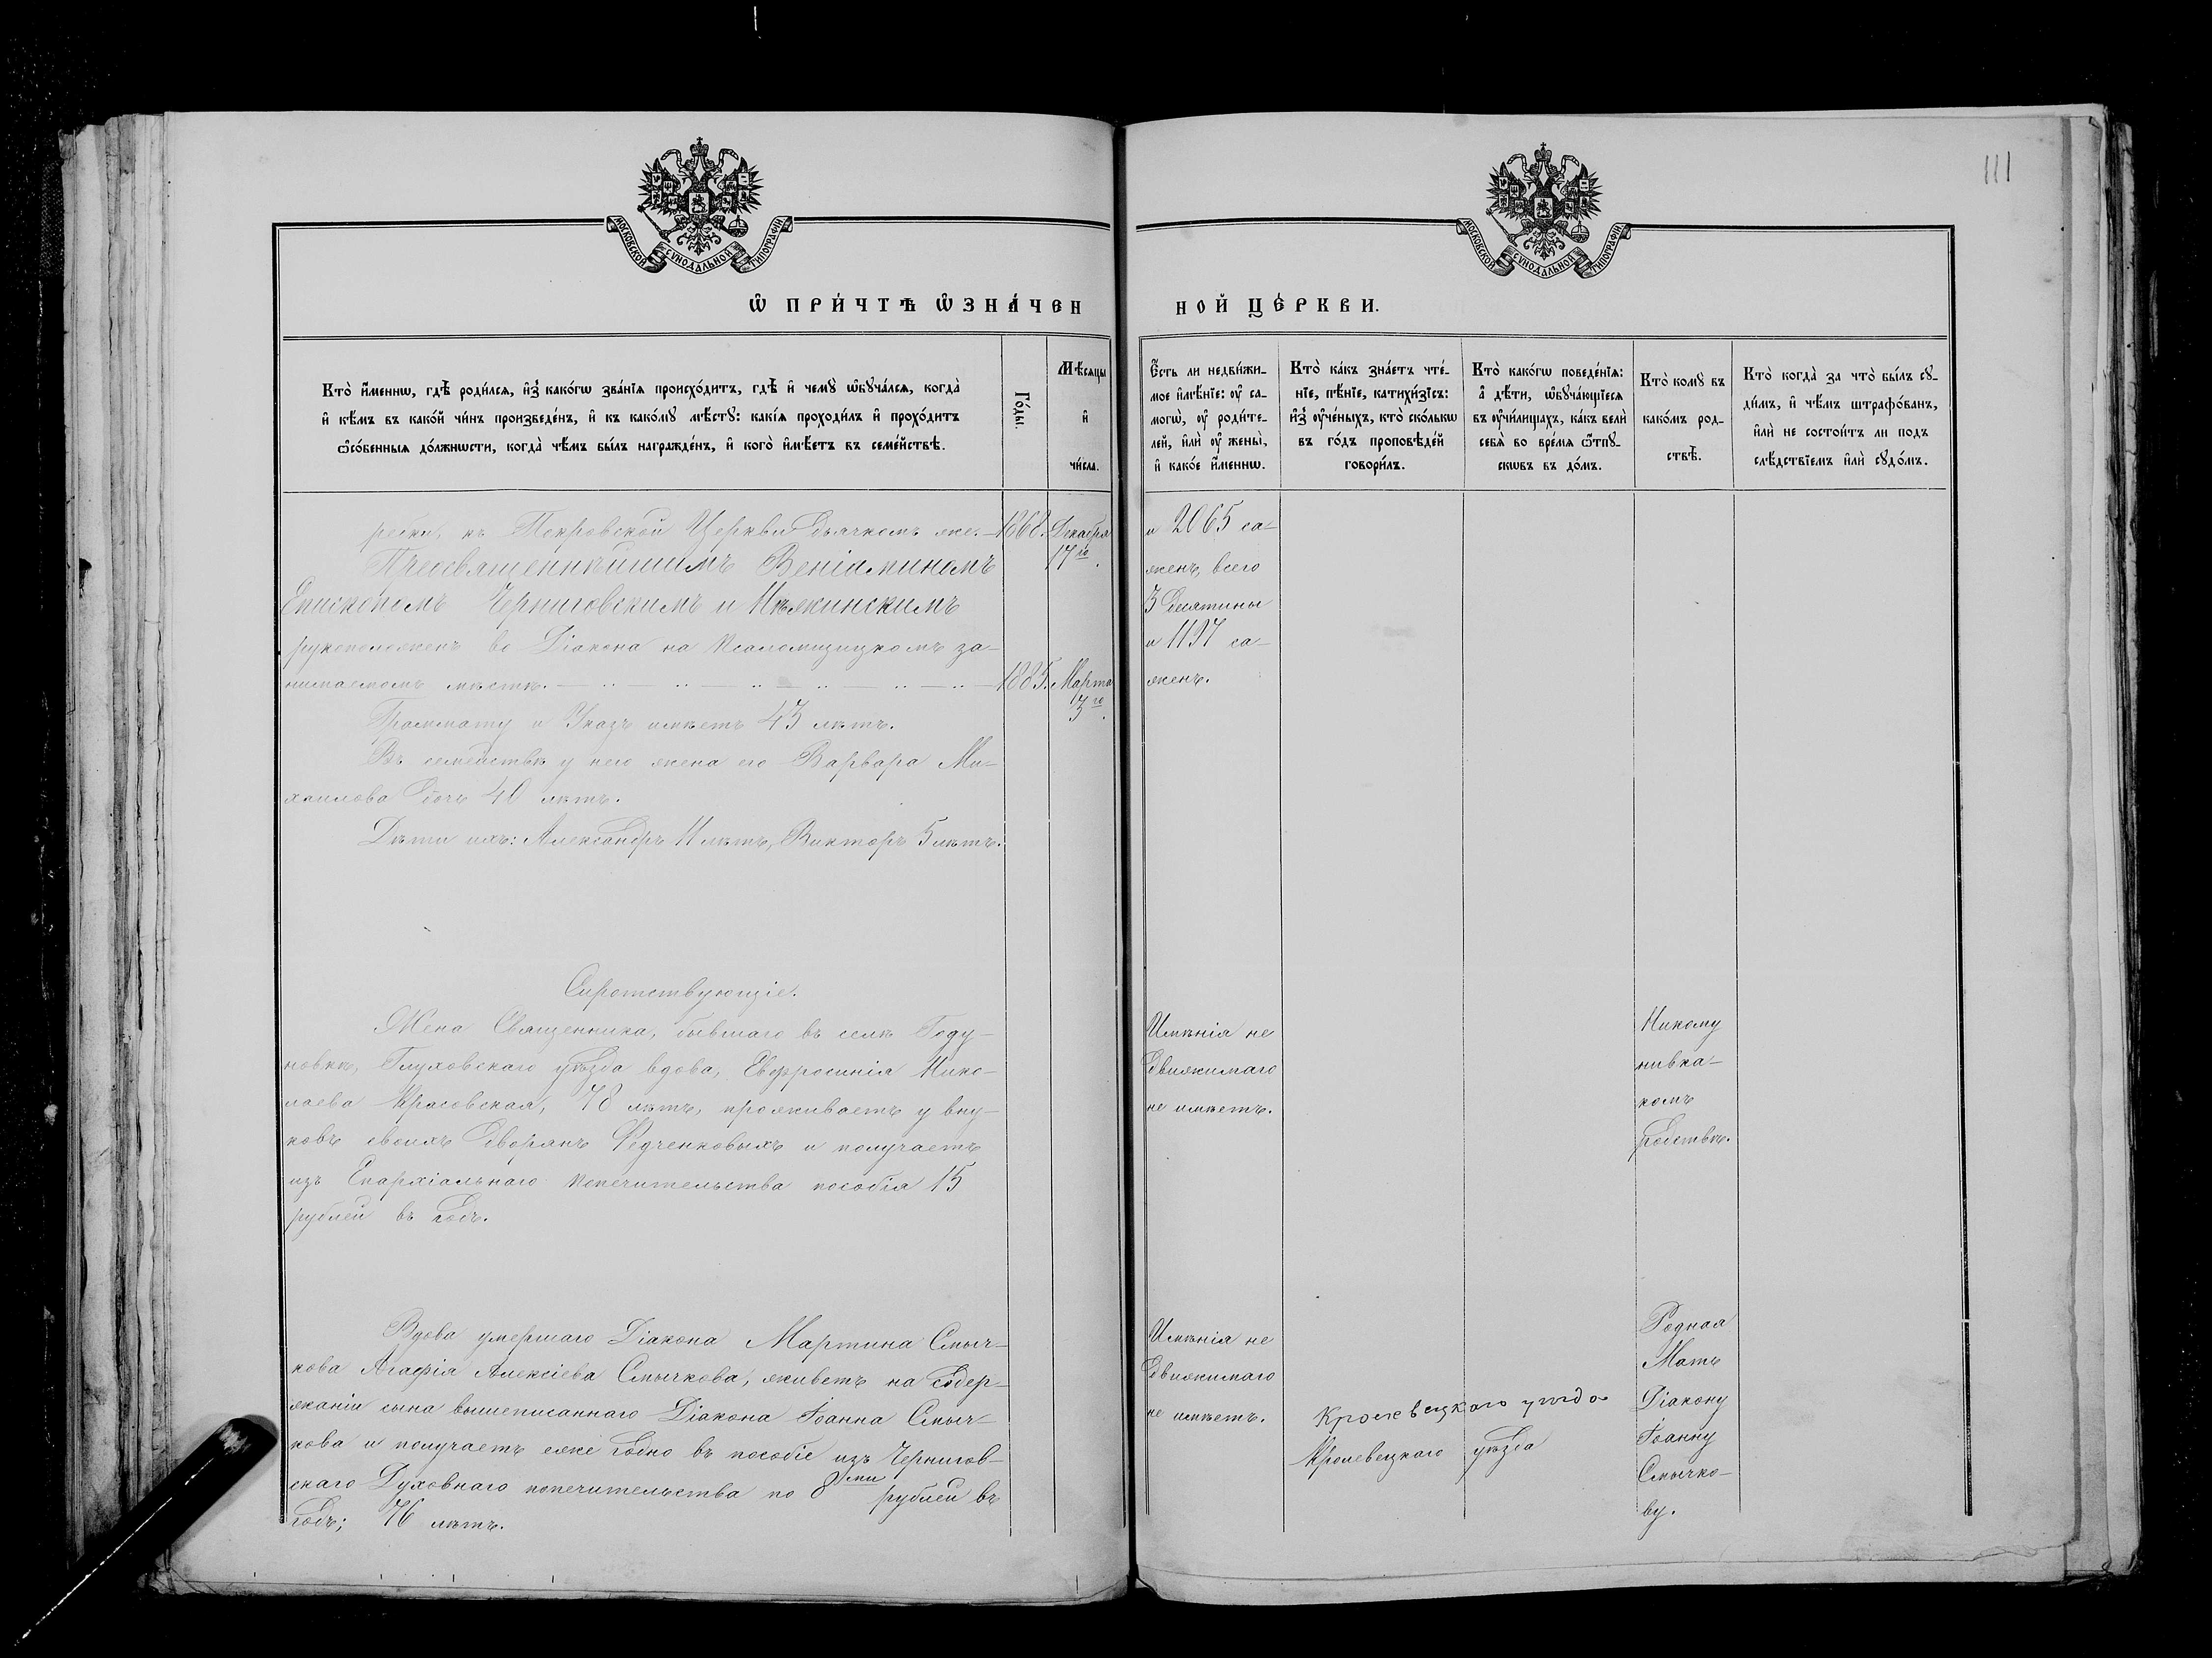 111
МОСКОВСКОЙ СѴНОДАЛЬНОЙ ТИПОГРАФІИ
МОСКОВСКОЙ СѴНОДАЛЬНОЙ ТИПОГРАФІИ
Ѡ ПРИ́ЧТѢ ѠЗНА́ЧЕН
НОЙ ЦЕ́РКВИ.
Кто̀ и҆́меннѡ, гдѣ̀ роди́лся, и҆з̾ како́гѡ зва́нїя происхо́дитъ, гдѣ̀ и҆ чемꙋ̀ ѡ҆бꙋча́лся, когда̀
и҆ кѣ́мъ въ како́й чи́нъ произведе́нъ, и҆ къ како́мꙋ мѣ́стꙋ: какі́я проходи́лъ и҆ прохо́дитъ
ѻ҆со́бенныя до́лжнѡсти, когда̀ чѣ́мъ бы́лъ награжде́нъ, и҆ кого̀ и҆мѣ́етъ въ семе́йствѣ.
Го́ды.
Мѣ́сяцы
и҆
чи́сла.
Е҆́сть ли недви́жи-
мое и҆мѣ́нїе: оу҆ са-
могѡ̀, оу҆ роди́те-
лей, и҆лѝ оу҆ жены̀,
и҆ како́е и҆́меннѡ.
Кто̀ ка́къ зна́етъ чте́-
нїе, пѣ́нїе, катихи́зїсъ:
и҆з̾ оу҆че́ныхъ, кто̀ ско́лькѡ
въ го́дъ проповѣ́дей
говори́лъ.
Кто̀ како́гѡ поведе́нїя:
а҆ дѣ́ти, ѡ҆бꙋча́ющїеся
въ оу҆чи́лищахъ, ка́къ велѝ
себя̀ во вре́мя ѿпꙋ-
скѡвъ въ до́мъ.
Кто̀ комꙋ̀ въ
како́мъ род-
ствѣ̀.
Кто̀ когда̀ за что̀ бы́лъ сꙋ-
ди́мъ, и҆ чѣ́мъ штрафо́ванъ,
и҆лѝ не состои́тъ ли подъ
слѣ́дствїемъ и҆лѝ сꙋдо́мъ.
къ Покровской Церкви дьячкомъ 1868. Декабря
17го.
Преосвященнѣйшимъ Веніаминомъ
Епископомъ Черниговскимъ и Нѣжинскимъ
рукоположенъ во Діакона на псаломщицкомъ за-
нимаемомъ мѣстѣ. 1885. Марта
3го.
Граммату и Указъ имѣетъ 43 лѣтъ.
Въ семействѣ у него жена его Варвара Ми-
хаилова дочь 40 лѣтъ.
Дѣти ихъ: Александръ 11 лѣтъ, Викторъ 5 лѣтъ.
и 2065 са-
женъ, всего
3 десятины
и 1197 са-
женъ.
Сиротствующіе.
Жена Священника, бывшаго въ селѣ Году-
новкѣ, Глуховскаго уѣзда вдова, Евфросинія Нико-
лаева Красовская, 78 лѣтъ, проживаетъ у вну-
ковъ своихъ дворянъ Федченковыхъ и получаетъ
изъ Епархіальнаго попечительства пособія 15
рублей въ годъ.
Имѣнія не
движимаго
не имѣетъ.
Никому
нивка-
комъ
родствѣ.
Вдова умершаго Діакона Мартина Смыч-
кова Агафія Алексіева Смычкова, живетъ на содер-
жаніи сына вышеписаннаго Діакона Іоанна Смыч-
кова и получаетъ еже годно въ пособіе изъ Чернигов-
скаго Духовнаго попечительства по 8ми рублей въ
годъ; 76 лѣтъ.
Имѣнія не
движимаго
не имѣетъ.
Кролевецкаго уѣзда
Кролевецкаго уѣзда
Родная
Мать
Діакону
Іоанну
Смычко-
ву.